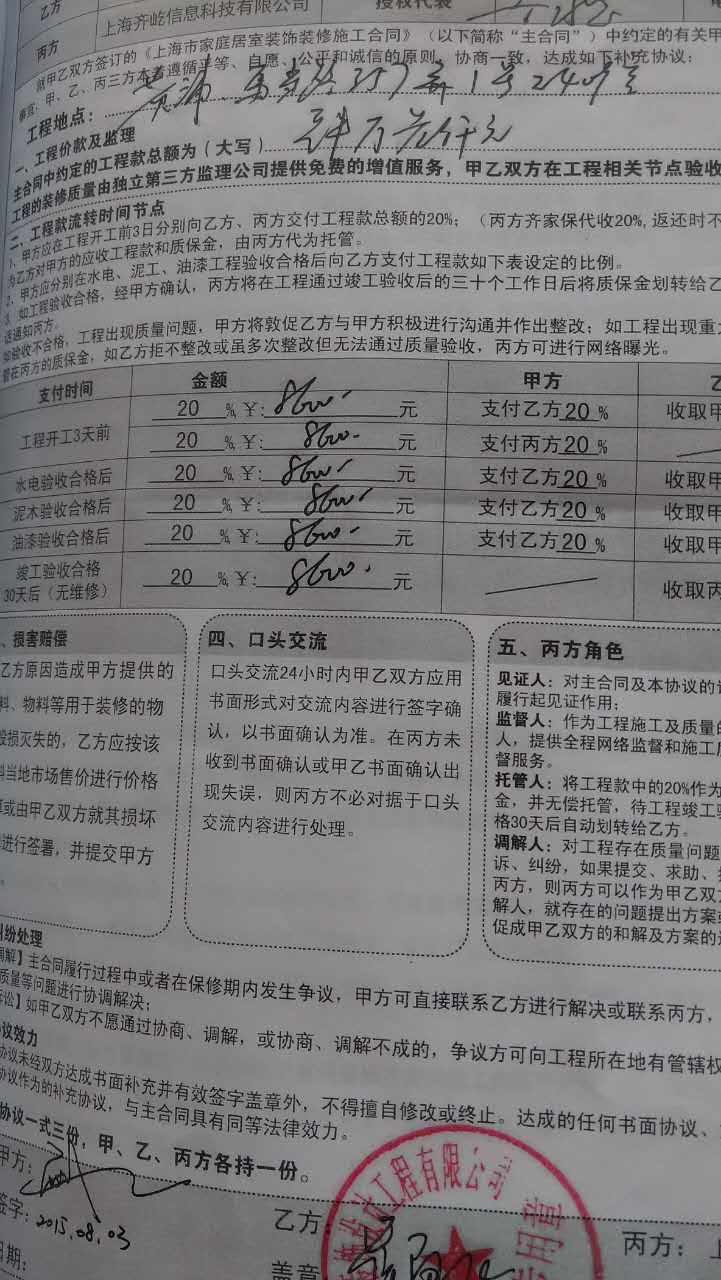 乙方
上海齐屹信息科技有限公司
授权代表
丙方
就甲乙双方签订的《上海市家庭居室装饰装修施工合同》（以下简称“主合同”）中约定的有关甲
事宜，甲、乙、丙三方本着遵循平等、自愿、公平和诚信的原则，协商一致，达成如下补充协议：
工程地点：
一、工程价款及监理
主合同中约定的工程款总额为（大写）
工程的装修质量由独立第三方监理公司提供免费的增值服务，甲乙双方在工程相关节点验收
二、工程款流转时间节点
1、甲方应在工程开工前3日分别向乙方、丙方交付工程款总额的20%；（丙方齐家保代收20%,返还时不
为乙方对甲方的应收工程款和质保金，由丙方代为托管。
2、甲方应分别在水电、泥工、油漆工程验收合格后向乙方支付工程款如下表设定的比例。
3、如工程验收合格，经甲方确认，丙方将在工程通过竣工验收后的三十个工作日后将质保金划转给乙
通知丙方。
如验收不合格，工程出现质量问题，甲方将敦促乙方与甲方积极进行沟通并作出整改；如工程出现重大
管在丙方的质保金，如乙方拒不整改或虽多次整改但无法通过质量验收，丙方可进行网络曝光。
支付时间 金额 甲方 乙
工程开工3天前 20 %,￥: 8600 元 支付乙方20 % 收取甲
20 %,￥: 8600 元 支付丙方20 %
水电验收合格后 20 %,￥: 8600 元 支付乙方20 % 收取甲
泥木验收合格后 20 %,￥: 8600 元 支付乙方20 % 收取甲
油漆验收合格后 20 %,￥: 8600 元 支付乙方20 % 收取甲
竣工验收合格
30天后（无维修） 20 %,￥: 8600 元 收取丙
、损害赔偿
乙方原因造成甲方提供的
料、物料等用于装修的物
毁损灭失的，乙方应按该
料当地市场售价进行价格
或由甲乙双方就其损坏
进行签署，并提交甲方
。
四、口头交流
口头交流24小时内甲乙双方应用
书面形式对交流内容进行签字确
认，以书面确认为准。在丙方未
收到书面确认或甲乙书面确认出
现失误，则丙方不必对据于口头
交流内容进行处理。
五、丙方角色
见证人：对主合同及本协议的
履行起见证作用；
监督人：作为工程施工及质量的
人，提供全程网络监督和施工
督服务。
托管人：将工程款中的20%作为
金，并无偿托管，待工程竣工验
格30天后自动划转给乙方。
调解人：对工程存在质量问题
诉、纠纷，如果提交、求助、
丙方，则丙方可以作为甲乙双方
解人，就存在的问题提出方案
促成甲乙双方的和解及方案的
纠纷处理
调解】主合同履行过程中或者在保修期内发生争议，甲方可直接联系乙方进行解决或联系丙方，
质量等问题进行协调解决；
诉讼】如甲乙双方不愿通过协商、调解，或协商、调解不成的，争议方可向工程所在地有管辖权
协议效力
协议未经双方达成书面补充并有效签字盖章外，不得擅自修改或终止。达成的任何书面协议、
协议作为的补充协议，与主合同具有同等法律效力。
协议一式三份，甲、乙、丙方各持一份。
甲方：
签字：2015.08.03
日期：
乙方：
盖章
丙方：上
工程有限公司
用章